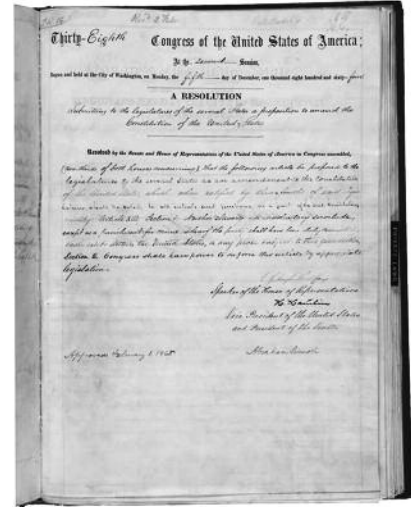 Thirty-Eighth Congress of the United States of America;
At the second Session,
Begun and held at the City of Washington, on Monday, the fifth day of December, one thousand eight hundred and sixty-four
A RESOLUTION
Submitting to the legislatures of the several States a proposition to amend the
Constitution of the United States
Resolved by the Senate and House of Representatives of the United States of America in Congress assembled,
(two thirds of both houses concurring) that the following article be proposed to the
legislatures of the several States as an amendment to the Constitution
of the United States, which, when ratified by three fourths of said
Article XIII. Section 1. Neither slavery nor involuntary servitude,
except as a punishment for crime whereof the party shall have been duly convicted,
shall exist within the United States, or any place subject to their jurisdiction.
Section 2. Congress shall have power to enforce this article by appropriate
legislation.
Speaker of the House of Representatives
H. Hamlin
Vice President of the United States
and President of the Senate
Approved February 1, 1865
Abraham Lincoln